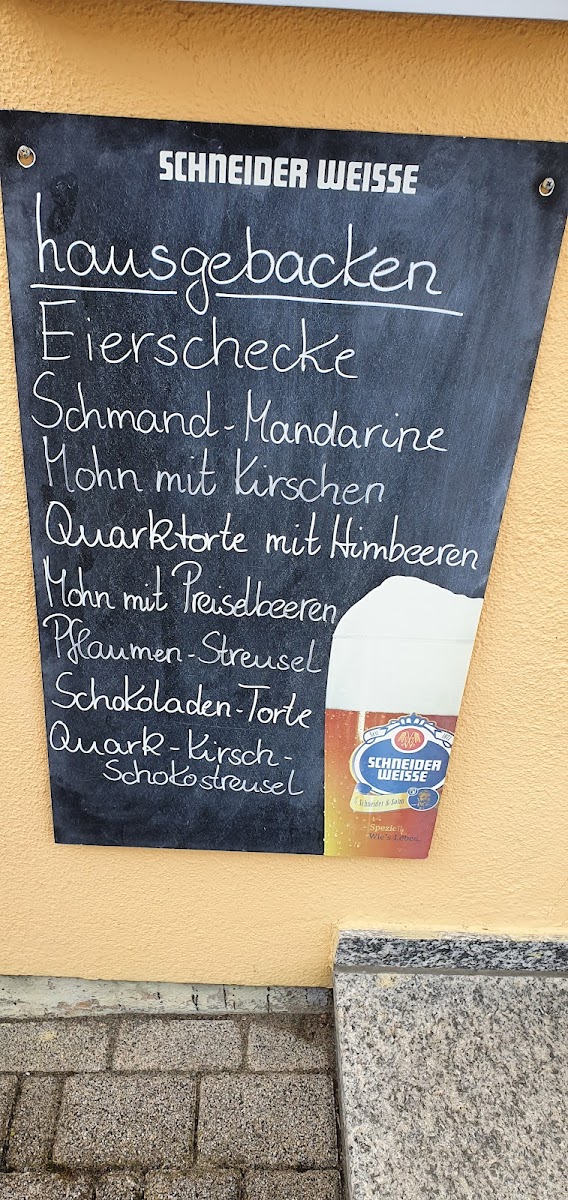 SCHNEIDER WEISSE
hausgebacken
Eierschecke
Schmand-Mandarine
Mohn mit Kirschen
Quarktorte mit Himbeeren
Mohn mit Preiselbeeren
Pflaumen-Streusel
Schokoladen-Torte
Quark-Kirsch-
Schokostreusel
SCHNEIDER
WEISSE
Schneider & Sohn